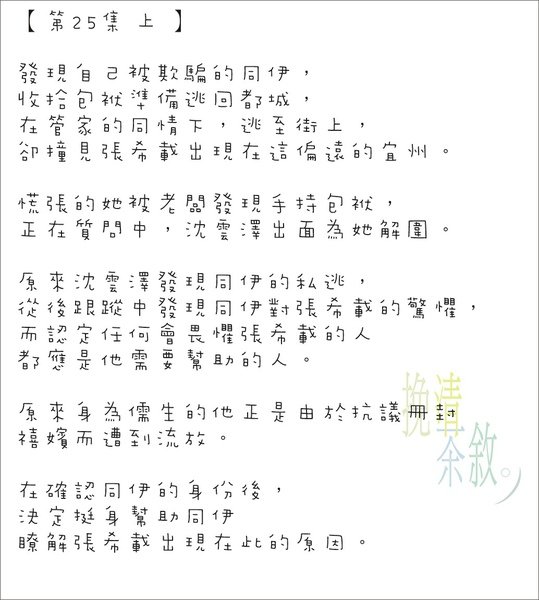 【第25集 上】
發現自己被欺騙的同伊，
收拾包袱準備逃回都城，
在管家的同情下，逃至街上，
卻撞見張希載出現在這偏遠的宜州。
慌張的她被老闆發現手持包袱，
正在質問中，沈雲澤出面為她解圍。
原來沈雲澤發現同伊的私逃，
從後跟蹤中發現同伊對張希載的驚懼，
而認定任何會畏懼張希載的人
都應是他需要幫助的人。
原來身為儒生的他正是由於抗議冊封
禧嬪而遭到流放。
在確認同伊的身份後，
決定挺身幫助同伊
瞭解張希載出現在此的原因。
挽清
余敘。